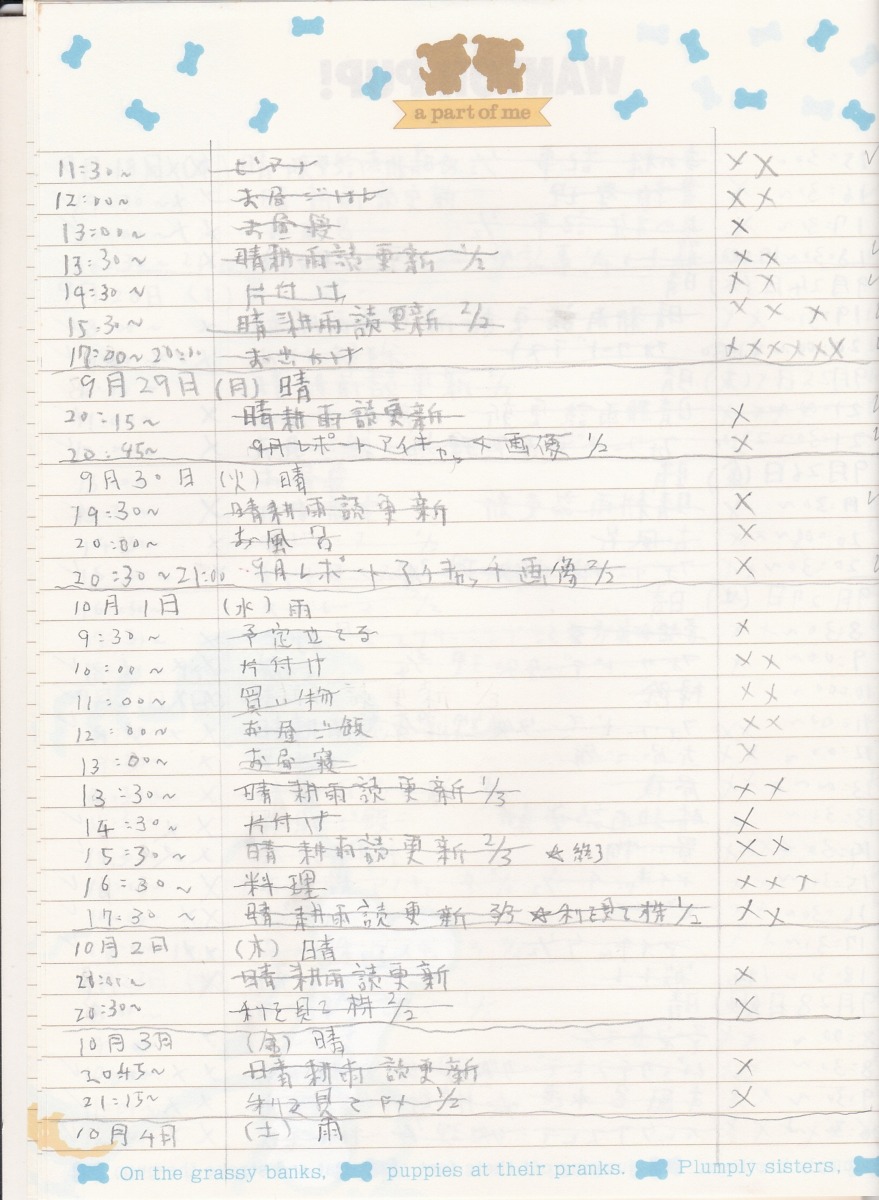 a part of me
11:30~ ピアノ ××
12:00~ お昼ごはん ××
13:00~ お昼寝 ×
13:30~ 晴耕雨読更新 1/2 ××
14:30~ 片付け ××
15:30~ 晴耕雨読更新 2/2 ×××
17:00~20:00 お出かけ ××××××
9月29日(月)晴
20:15~ 晴耕雨読更新 ×
20:45~ 9月レポートアイキャッチ画像 1/2 ×
9月30日(火)晴
19:30~ 晴耕雨読更新 ×
20:00~ お風呂 ×
20:30~21:00 9月レポートアイキャッチ画像 2/2 ×
10月1日(水)雨
9:30~ 予定立てる ×
10:00~ 片付け ××
11:00~ 買い物 ××
12:00~ お昼ご飯 ××
13:00~ お昼寝 ×
13:30~ 晴耕雨読更新 1/3 ××
14:30~ 片付け ×
15:30~ 晴耕雨読更新 2/3 ☆終了 ××
16:30~ 料理 ×××
17:30~ 晴耕雨読更新 3/3 ☆利を見て株 1/2 ××
10月2日(木)晴
晴耕雨読更新 ×
20:30~ 利を見て株 2/2 ×
10月3日(金)晴
2045~ 晴耕雨読更新 ×
21:15~ 利を見て 1/2 ×
10月4日(土)雨
On the grassy banks, puppies at their pranks. Plumply sisters,